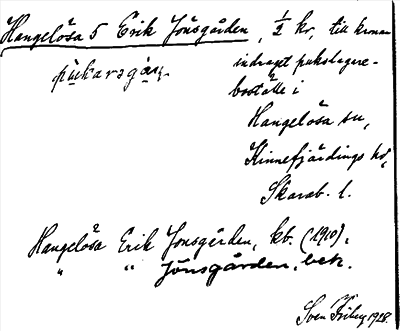 Hangelösa 5 Erik Jönsgården, 1/2 kr, till kronan
indraget pukslagare-
pu̇karsgȧn
boställe i
Hangelösa sn,
Kinnefjärdings hd,
Skarab. l.
Hangelösa Erik Jönsgården, kb. (1910),
" " Jönsgården, bek.
Sven Friberg 1928.